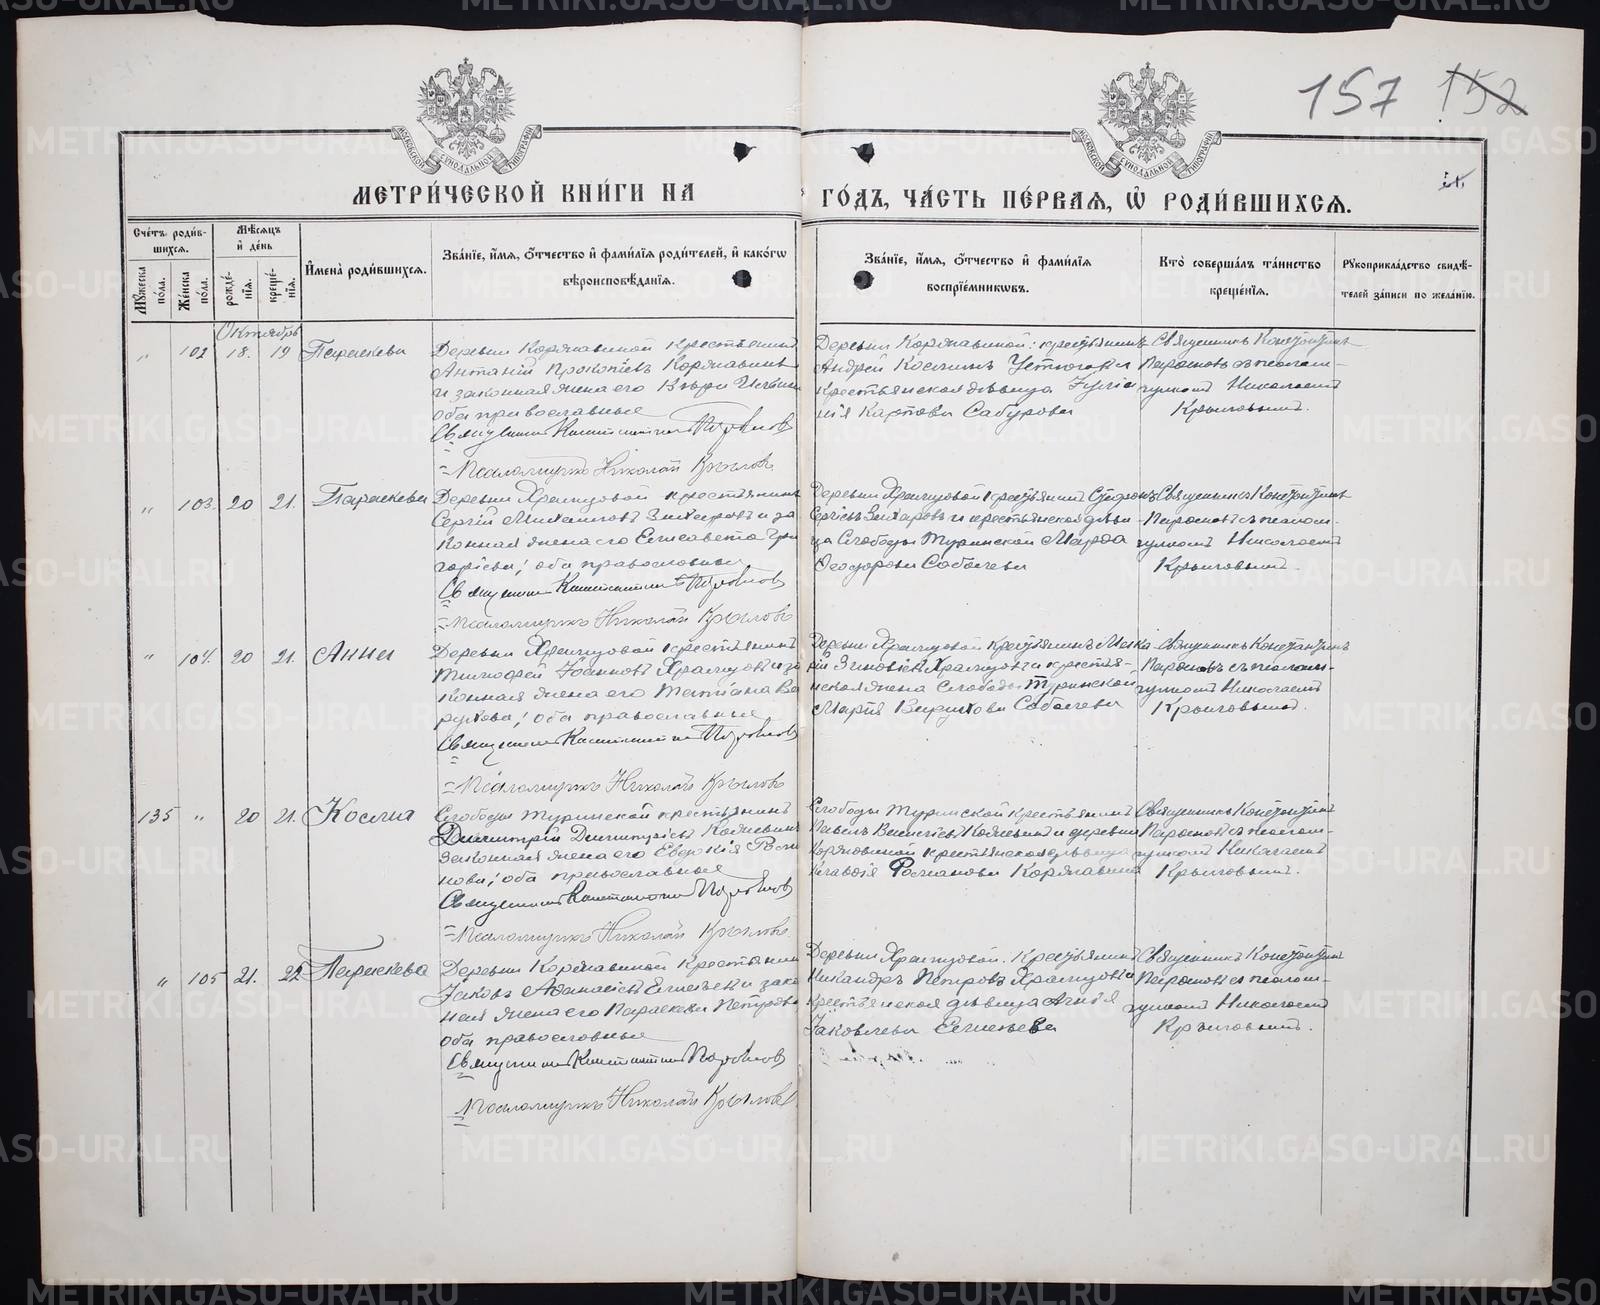 157 152
МЕТРИ́ЧЕСКОЙ КНИ́ГИ НА ГО́ДЪ, ЧА́СТЬ ПЕ́РВАЯ, Ѡ҆ РОДИ́ВШИХСЯ.
Сче́тъ роди́в-
шихся.
Мꙋ́жеска по́ла.
Же́нска по́ла.
Мѣ́сяцъ
и҆ де́нь
рожде́-
нїя.
креще́-
нїя.
И҆мена̀ роди́вшихся.
Зва́нїе, и҆́мя, ѻ҆́тчество и҆ фами́лїя роди́телей, и҆ како́гѡ
вѣроисповѣ́данїя.
Зва́нїе, и҆́мя, ѻ҆́тчество и҆ фами́лїя
воспрїе́мникѡвъ.
Кто̀ соверша́лъ та́инство
креще́нїя.
Рꙋкоприкла́дство свидѣ́-
телей за́писи по жела́нїю.
Октябрь
" 102 18. 19 Параскева
Деревни Коржавиной крестьянинъ
Антоній Прокопіевъ Коржавинъ
и законная жена его
оба православные
Священникъ Константинъ Парѳеновъ
Псаломщикъ Николай Крыловъ
Деревни Коржавиной: крестьянинъ
Андрей Косминъ Устюговъ и
крестьянская дѣвица Іулiа-
нія Карпова Сабурова
Священникъ Константинъ
Парѳеновъ съ псалом-
щикомъ Николаемъ
Крыловымъ.
" 103. 20 21. Параскева
Деревни Храмцовой крестьянинъ
Сергій Михаиловъ Захаровъ и за
конная жена его Елисавета Гри
горіева; оба православные
Священникъ Константинъ Парѳеновъ
Псаломщикъ Николай Крыловъ
Деревни Храмцовой крестьянинъ
Сергіевъ Захаровъ и крестьянская дѣви-
ца Слободы Туринской Марѳа
Ѳеодорова Собачева
Священникъ Константинъ
Парѳеновъ съ псалом-
щикомъ Николаемъ
Крыловымъ.
" 104. 20 21. Анна
Деревни Храмцовой крестьянинъ
Тимоѳей Іоанновъ Храмцовъ и за
конная жена его Татіана
оба православные
Священникъ Константинъ Парѳеновъ
Псаломщикъ Николай Крыловъ
Деревни Храмцовой крестьянинъ
Зиновіевъ Храмцовъ и крестья-
нская жена Слободы Туринской
Марія Собачева
Священникъ Константинъ
Парѳеновъ съ псалом-
щикомъ Николаемъ
Крыловымъ.
135 " 20 21. Косма
Слободы Туринской крестьянинъ
Димитрій Димитріевъ
законная жена его Евдокія Рома
нова; оба православные
Священникъ Константинъ Парѳеновъ
Псаломщикъ Николай Крыловъ
Слободы Туринской крестьянинъ
Павелъ и деревни
Коржавиной крестьянская дѣвица
Клавдія Романова Коржавина
Священникъ Константинъ
Парѳеновъ съ псалом-
щикомъ Николаемъ
Крыловымъ.
" 105 21. 22 Параскева
Деревни Коржавиной крестьянинъ
Іаковъ Аѳанасіевъ и зако
нная жена его Параскева Петрова
оба православные
Священникъ Константинъ Парѳеновъ
Псаломщикъ Николай Крыловъ
Деревни Храмцовой. Крестьянинъ
Никандръ Петровъ Храмцовъ и
крестьянская дѣвица
Іаковлева
Священникъ Константинъ
Парѳеновъ съ псалом-
щикомъ Николаемъ
Крыловымъ.
METRIKI.GASO-URAL.RU